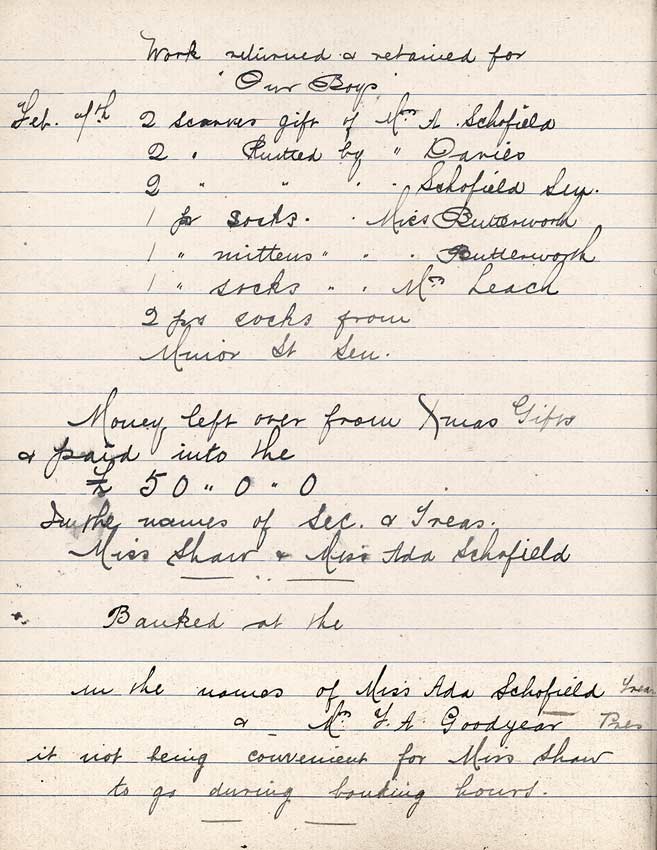 Work returned & retained for
"Our Boys"
Feb. 7th 2 scarves gift of Mrs A. Schofield
2 " Knitted by " Davies
2 " " " " Schofield Sen.
1 pr socks. " Miss Butterworth
1 " mittens " " " Butterworth
1 " socks " " Mrs Leach
2 prs socks from
Minor St Sen.
Money left over from Xmas Gifts
& paid into the
£ 50 " 0 " 0
In the names of Sec. & Treas.
Miss Shaw & Miss Ada Schofield
Banked at the
in the names of Miss Ada Schofield Treas
& Mr F. A. Goodyear Pres
it not being convenient for Miss Shaw
to go during banking hours.